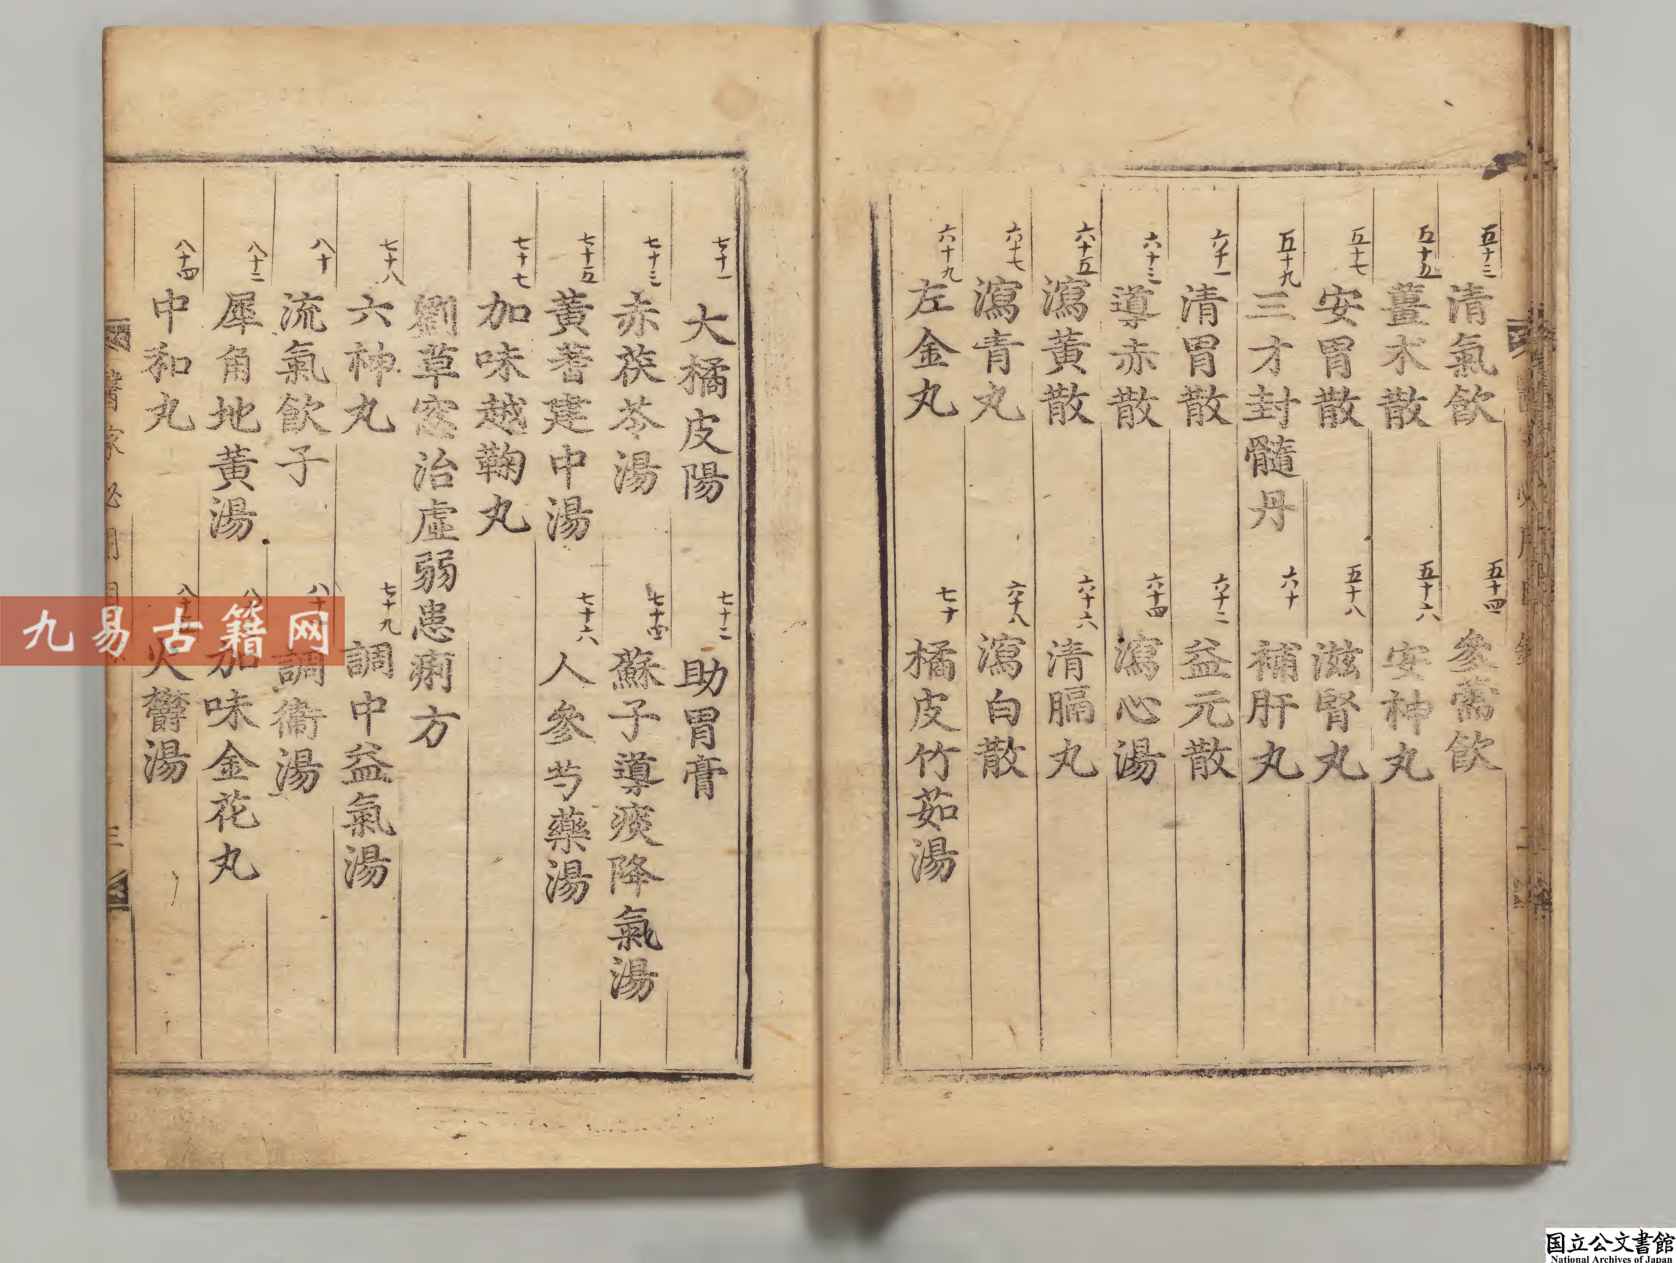 五十三 清氣飮 五十四 參鶯飮
五十五 薑朮散 五十六 安神丸
五十七 安胃散 五十八 滋腎丸
五十九 三才封髓丹 六十 補肝丸
六十一 清胃散 六十二 益元散
六十三 導赤散 六十四 瀉心湯
六十五 瀉黃散 六十六 清膈丸
六十七 瀉青丸 六十八 瀉白散
六十九 左金丸 七十 橘皮竹茹湯
七十一 大橘皮陽 七十二 助胃膏
七十三 赤茯苓湯 七十四 蘇子導痰降氣湯
七十五 黃蓍建中湯 七十六 人參芍藥湯
七十七 加味越鞠丸
劉草窓治虛弱患痢方
七十八 六神丸 七十九 調中益氣湯
八十 流氣飮子 調衞湯
八十二 犀角地黃湯 加味金花丸
八十四 中和丸 火鬱湯
九易古籍网
国立公文書館
National Archives of Japan